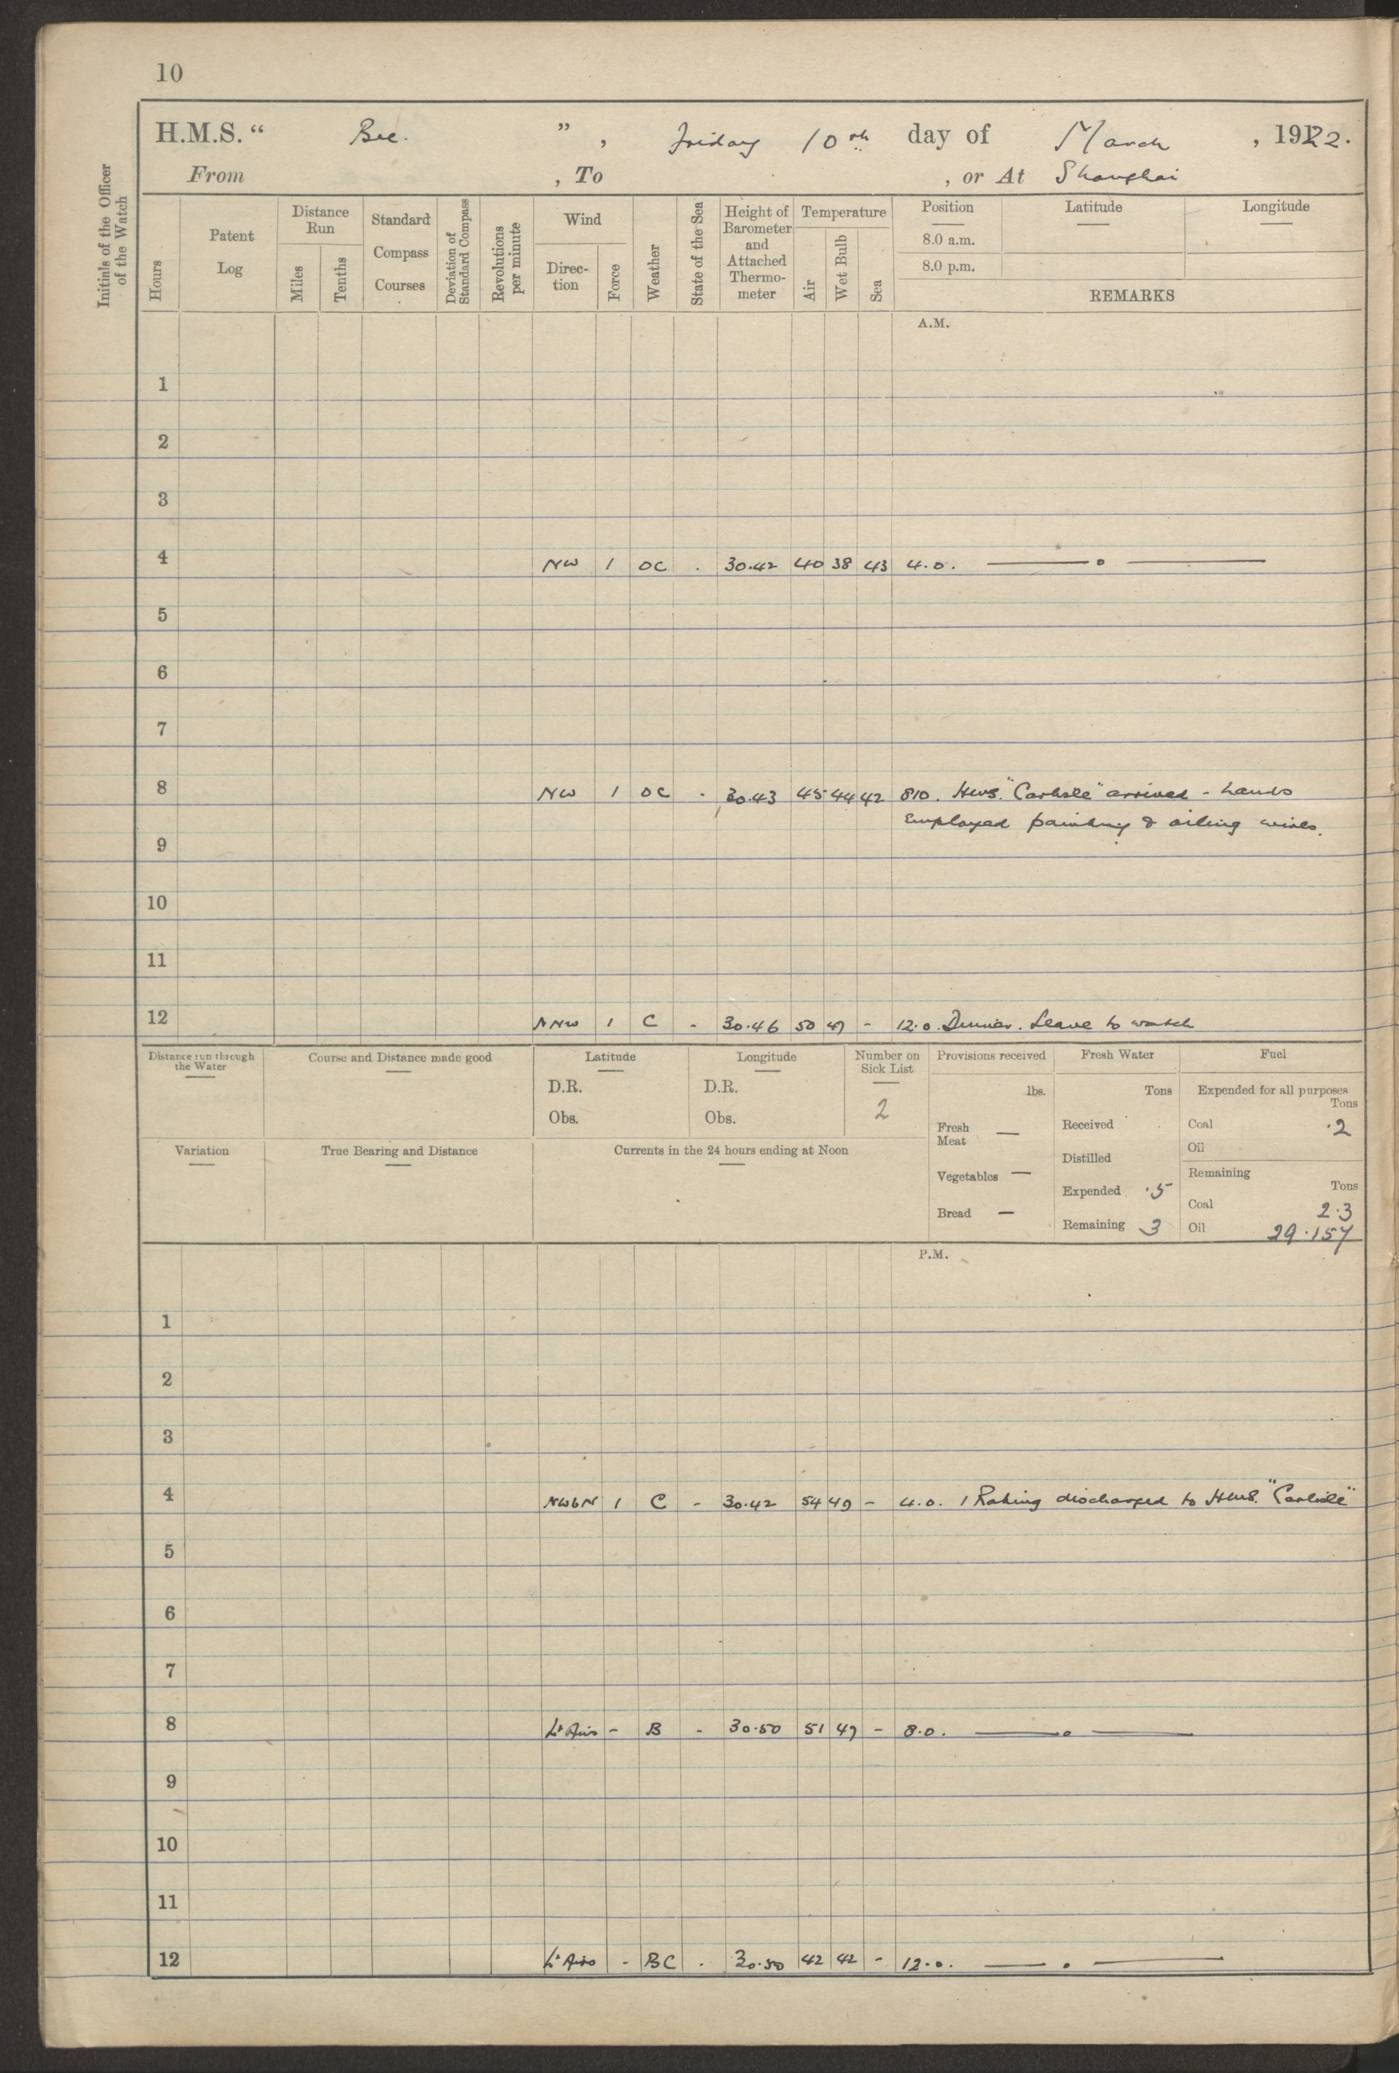 10
H.M.S. " Bee. ", Friday 10th day of March, 1922.
From , To , or At Shanghai
Initials of the Officer of the Watch
Hours
Patent Log
Distance Run
Miles
Tenths
Standard Compass Courses
Deviation of Standard Compass
Revolutions per minute
Wind
Direc-tion
Force
Weather
State of the Sea
Height of Barometer and Attached Thermo-meter
Temperature
Air
Wet Bulb
Sea
Position
8.0 a.m.
8.0 p.m.
Latitude
Longitude
REMARKS
A.M.
1
2
3
4 NW 1 OC . 30.42 40 38 43 4.0. —— o ——
5
6
7
8 NW 1 OC - 30.43 45 44 42 810. HMS. "Carlisle" arrived - hands
employed painting & oiling wires.
9
10
11
12 NNW 1 C - 30.46 50 47 - 12.0. Dinner. Leave to watch
Distance run through the Water
Course and Distance made good
Latitude
D.R.
Obs.
Longitude
D.R.
Obs.
Number on Sick List
2
Provisions received
lbs.
Fresh Meat —
Vegetables —
Bread —
Fresh Water
Tons
Received
Distilled
Expended .5
Remaining 3
Fuel
Expended for all purposes
Tons
Coal .2
Oil
Remaining
Tons
Coal 2.3
Oil 29.157
Variation
True Bearing and Distance
Currents in the 24 hours ending at Noon
P.M.
1
2
3
4 NWbN 1 C - 30.42 54 49 - 4.0. 1 Rating discharged to HMS. "Carlisle"
5
6
7
8 Lt Airs - B - 30.50 51 49 - 8.0. —— o ——
9
10
11
12 Lt Airs - BC . 30.50 42 42 - 12.0. —— o ——